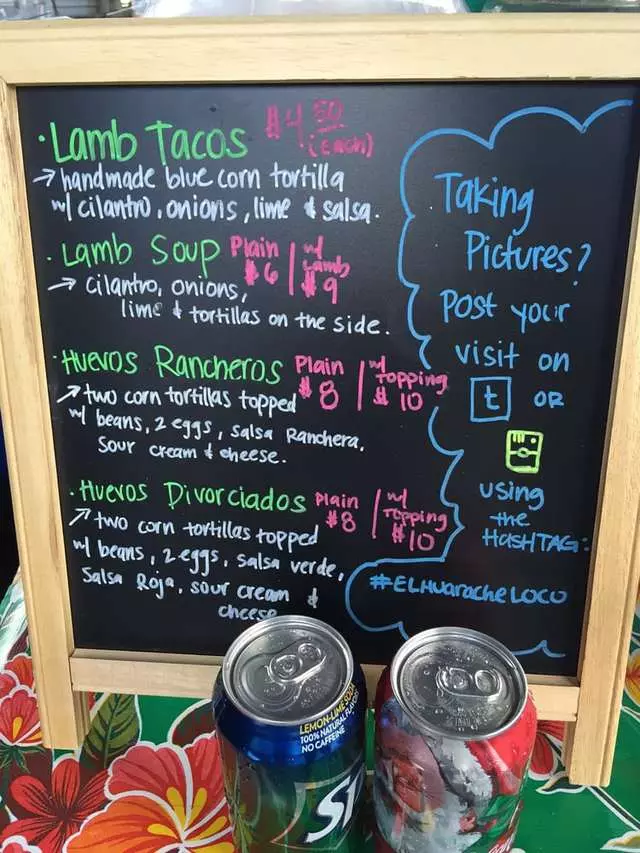 · Lamb Tacos $4.50 (each)
→ handmade blue corn tortilla
w/ cilantro, onions, lime & salsa.
· Lamb Soup Plain $6 | w/ Lamb $9
→ cilantro, onions,
lime & tortillas on the side.
· Huevos Rancheros Plain $8 | w/ Topping $10
↗ two corn tortillas topped
w/ beans, 2 eggs, salsa Ranchera,
sour cream & cheese.
· Huevos Divorciados Plain $8 | w/ Topping $10
↗ two corn tortillas topped
w/ beans, 2 eggs, salsa verde,
Salsa Roja, sour cream &
cheese
Taking
Pictures?
Post your
visit on
t OR
using
the
HASHTAG:
#ELHuaracheLOCO
LEMON-LIME SODA
100% NATURAL FLAVORS
NO CAFFEINE